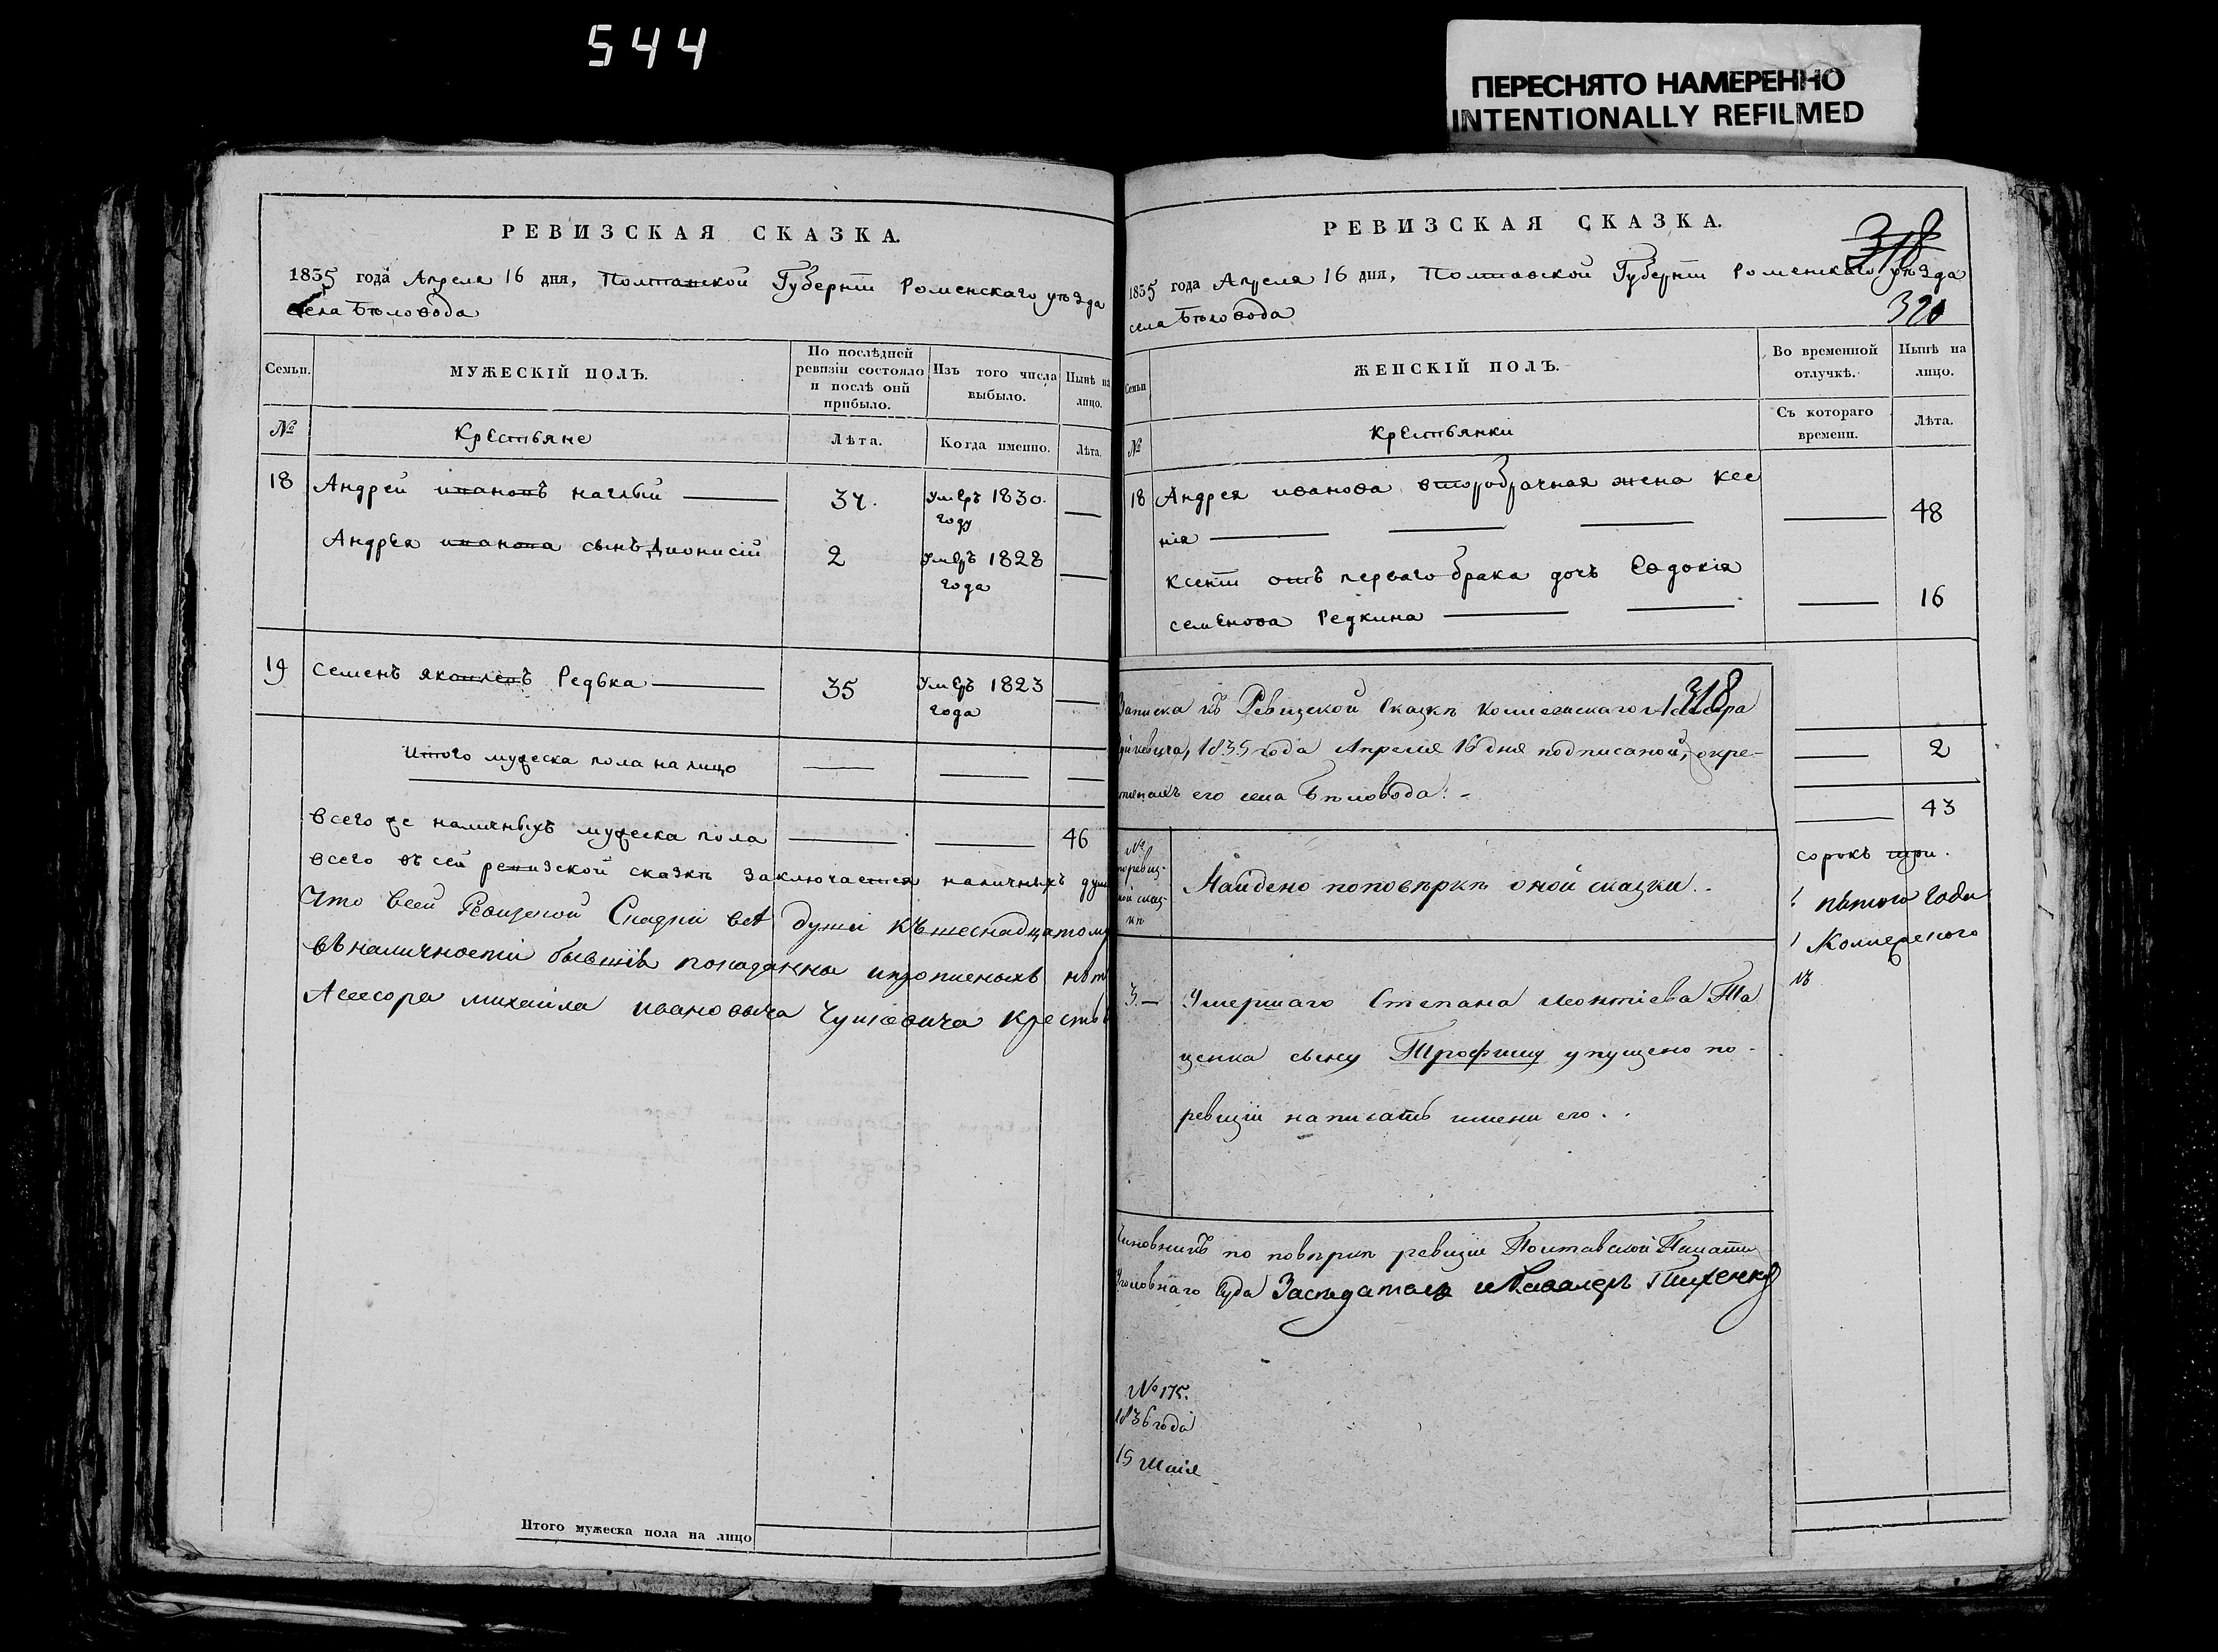 544
ПЕРЕСНЯТО НАМЕРЕННО
INTENTIONALLY REFILMED
РЕВИЗСКАЯ СКАЗКА.
1835 года Апреля 16 дня, Полтавской Губернiи Роменскаго уѣзда
села Бѣловода
Семьи.
МУЖЕСКIЙ ПОЛЪ.
По послѣдней ревизiи состояло и послѣ онй прибыло.
Изъ того числа выбыло.
Нынѣ на лицо.
№
Крестьяне
Лѣта.
Когда именно.
Лѣта.
18 Андрей ивановъ наглый 34. Умеръ 1830. году
Андрея иванова сынъ Дионисiй 2 Умеръ 1828 года
19 Семенъ яковлевъ Редька 35 Умеръ 1823 года
Итого мужеска пола на лицо
Всего же наличныхъ мужеска пола 46
всего въ сей ревизской сказкѣ заключается наличныхъ душ
Что всей Ревизской Сказки всѣ души къ шеснадцатому
въ наличности бывшiя показанны и прописныхъ нѣт
Асесора Михайла Ивановича крестья
Итого мужеска пола на лицо
РЕВИЗСКАЯ СКАЗКА.
318
1835 года Апреля 16 дня, Полтавской Губернiи Роменскаго уѣзда
села Бѣловода
320
Семьи
ЖЕНСКIЙ ПОЛЪ.
Во временной отлучкѣ.
Нынѣ на лицо.
№
Крестьянки
Съ котораго времени.
Лѣта.
18 Андрея иванова второбрачная жена Ксе
нiя 48
Ксенiи отъ перваго брака дочъ Евдокiя
семенова Редкина 16
2
43
сорокъ три.
пятого года
318
Записка къ Ревизской Сказкѣ Колежскаго Асесора
1835 года Апреля 16 дня подписаной, о кре-
его села Бѣловода. -
№
по ревиз-
кой сказ-
кѣ
Найдено по повѣркѣ оной сказки.
3. — Умершаго Степана Леонтiева Та
ценка сыну Трофиму упущено по-
ревизiи написать имени его.
Чиновникъ по повѣркѣ ревизiи Полтавской Палаты
Уголовнаго Суда Заседатель и Кавалеръ
№ 175.
1836 года
15 Маiя